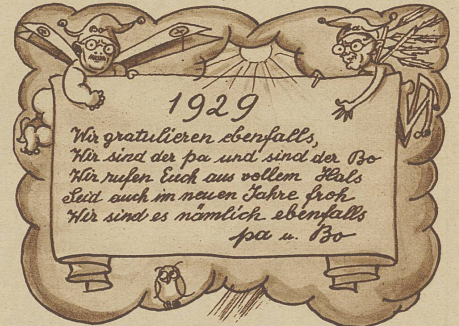 1929
Wir gratulieren ebenfalls,
Wir sind der pa und sind der Bo
Wir rufen Euch aus vollem Hals
Seid auch im neuen Jahre froh
Wir sind es nämlich ebenfalls
pa u. Bo